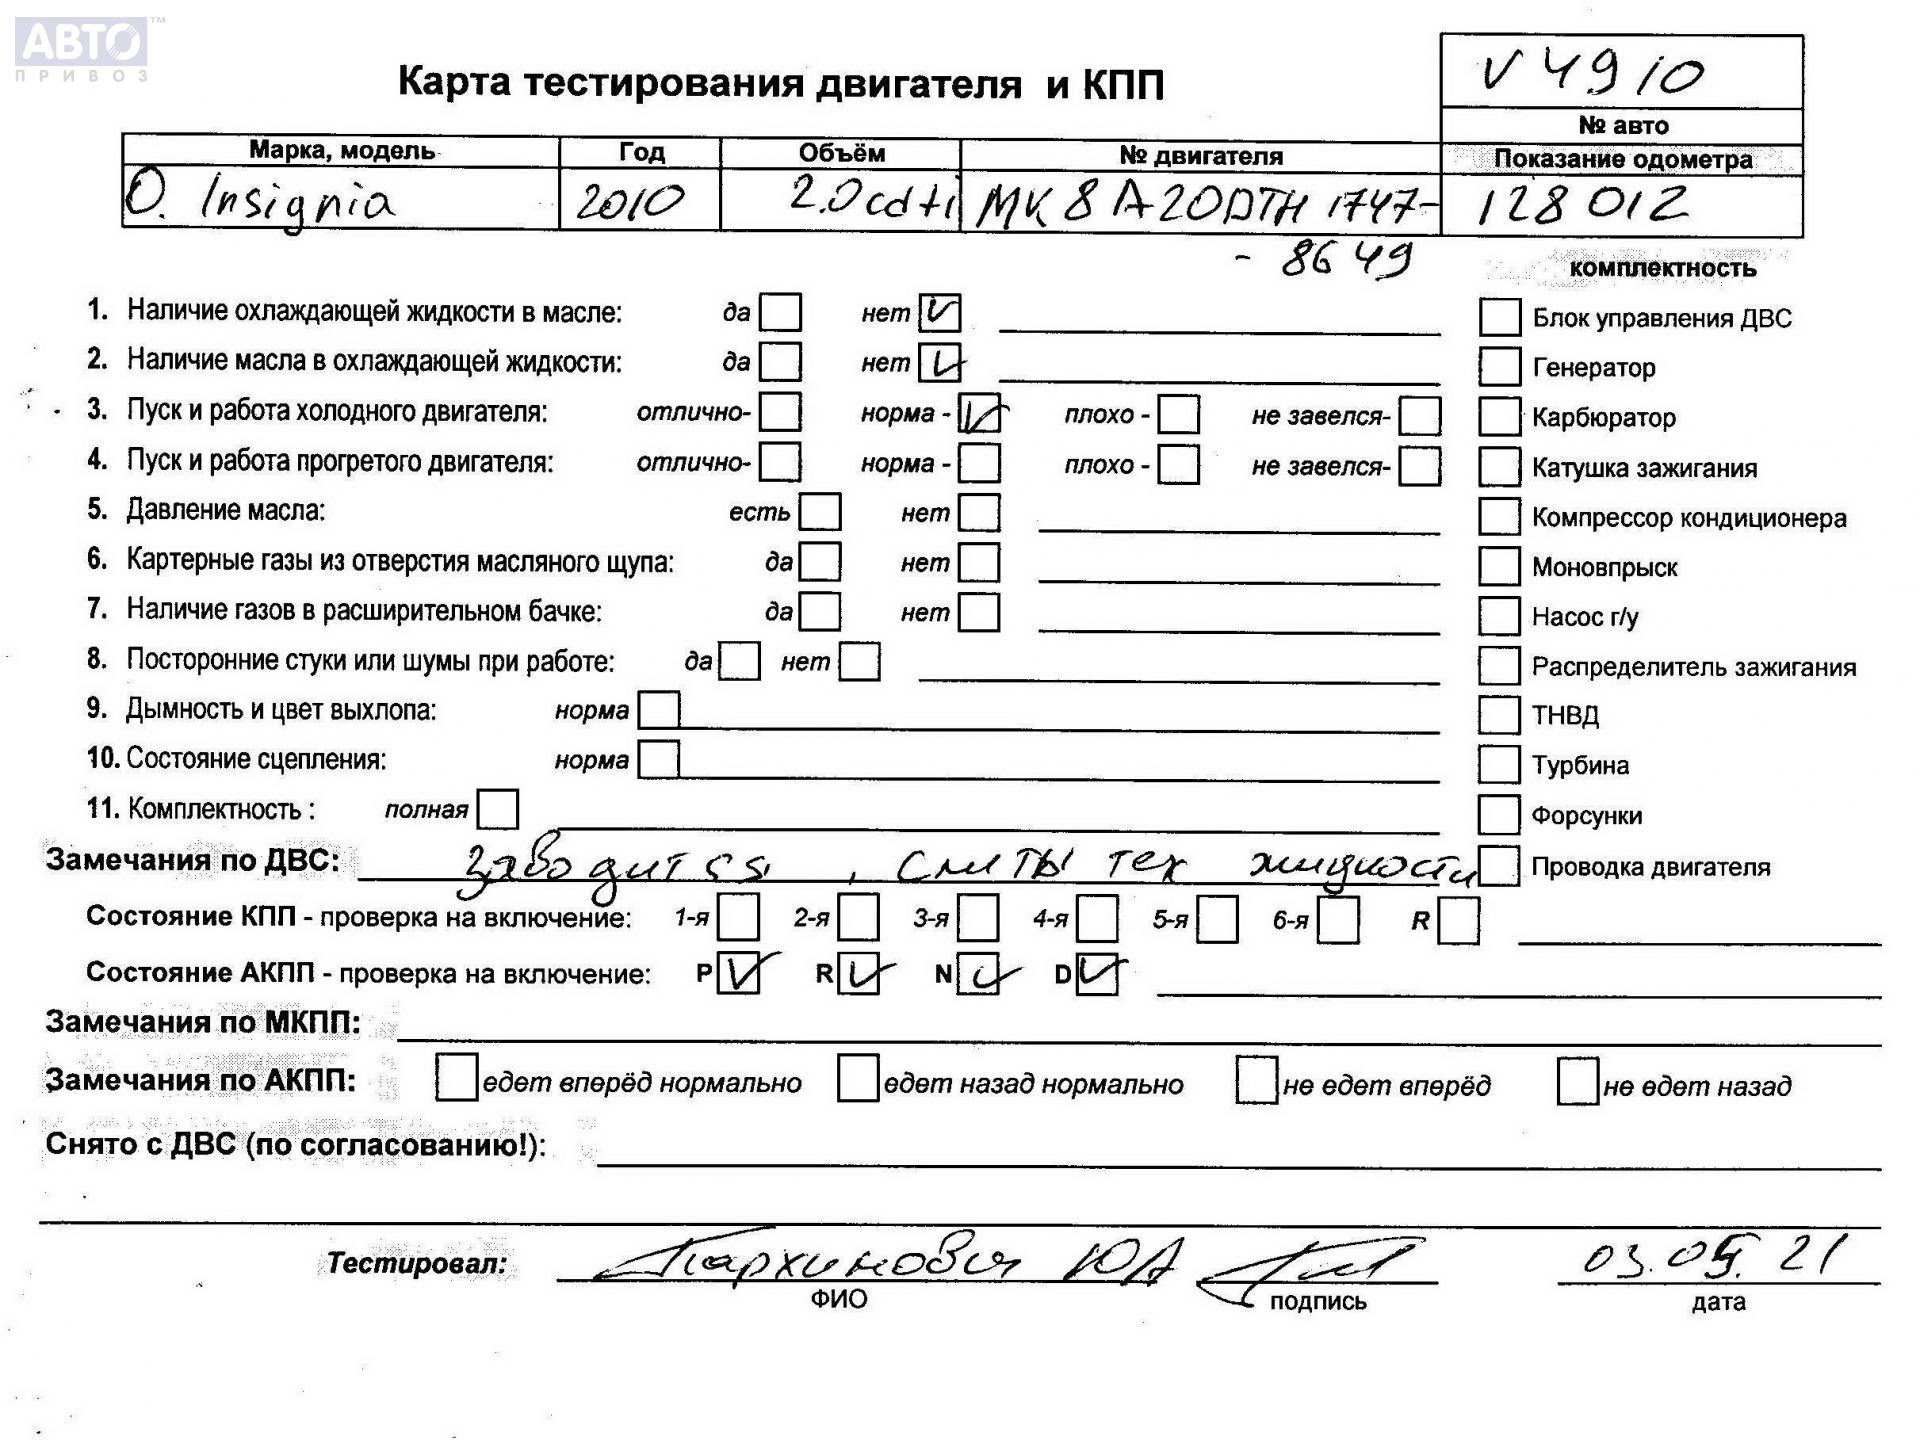 АВТО™
ПРИВОЗ
Карта тестирования двигателя и КПП
V4910
№ авто
Марка, модель Год Объём № двигателя Показание одометра
O. Insignia 2010 2.0cdti MK8A20DTH 1747- 128012
- 8649
комплектность
1. Наличие охлаждающей жидкости в масле: да нет Блок управления ДВС
2. Наличие масла в охлаждающей жидкости: да нет Генератор
3. Пуск и работа холодного двигателя: отлично- норма - плохо - не завелся- Карбюратор
4. Пуск и работа прогретого двигателя: отлично- норма - плохо - не завелся- Катушка зажигания
5. Давление масла: есть нет Компрессор кондиционера
6. Картерные газы из отверстия масляного щупа: да нет Моновпрыск
7. Наличие газов в расширительном бачке: да нет Насос г/у
8. Посторонние стуки или шумы при работе: да нет Распределитель зажигания
9. Дымность и цвет выхлопа: норма ТНВД
10. Состояние сцепления: норма Турбина
11. Комплектность : полная Форсунки
Замечания по ДВС: заводится, слиты тех жидкости Проводка двигателя
Состояние КПП - проверка на включение: 1-я 2-я 3-я 4-я 5-я 6-я R
Состояние АКПП - проверка на включение: P R N D
Замечания по МКПП:
Замечания по АКПП: едет вперёд нормально едет назад нормально не едет вперёд не едет назад
Снято с ДВС (по согласованию!):
Тестировал: ЮА 03.05.21
ФИО подпись дата